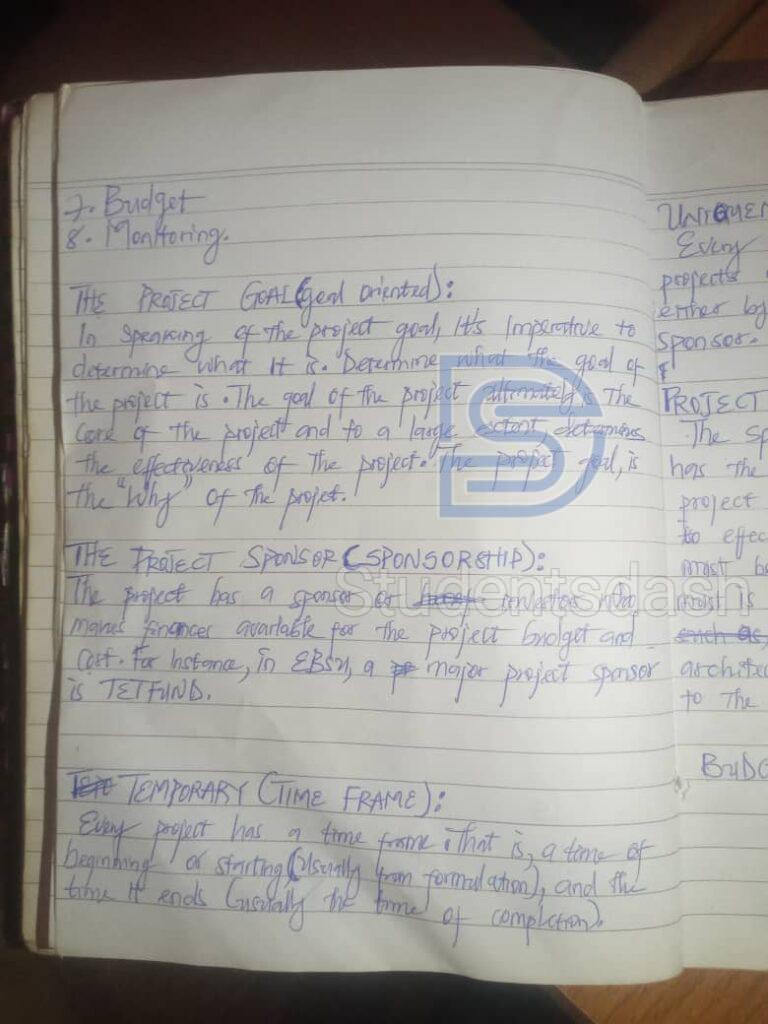 7. Budget
8. Monitoring.
THE PROJECT GOAL (goal oriented):
In speaking of the project goal, it's imperative to
determine what it is. Determine what the goal of
the project is. The goal of the project ultimately is the
core of the project and to a large extent, determines
the effectiveness of the project. The project goal, is
the "Why" of the project.
THE PROJECT SPONSOR (SPONSORSHIP):
The project has a sponsor or investor who
makes finances available for the project budget and
cost. For instance, in EBSU, a major project sponsor
is TETFUND.
TEMPORARY (TIME FRAME):
Every project has a time frame. That is, a time of
beginning or starting (usually from formulation), and the
time it ends (usually the time of completion).
Every
projects
either by
sponsor.
PROJECT
The
has the
project
to
must
must is
such as,
to the
Studentsdash